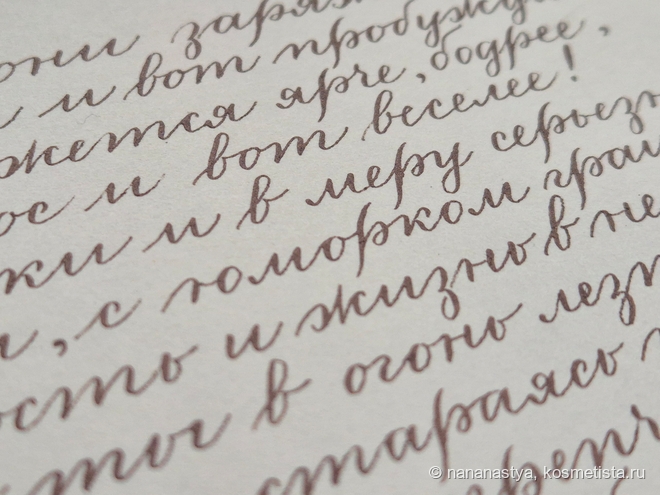 они заряж
и вот пробужу
жется ярче, бодрее,
ос и вот веселее!
ки и в меру серьезн
, с юморком
ость и жизнь в не
ты в огонь лезт
стараясь
© nananastya, kosmetista.ru